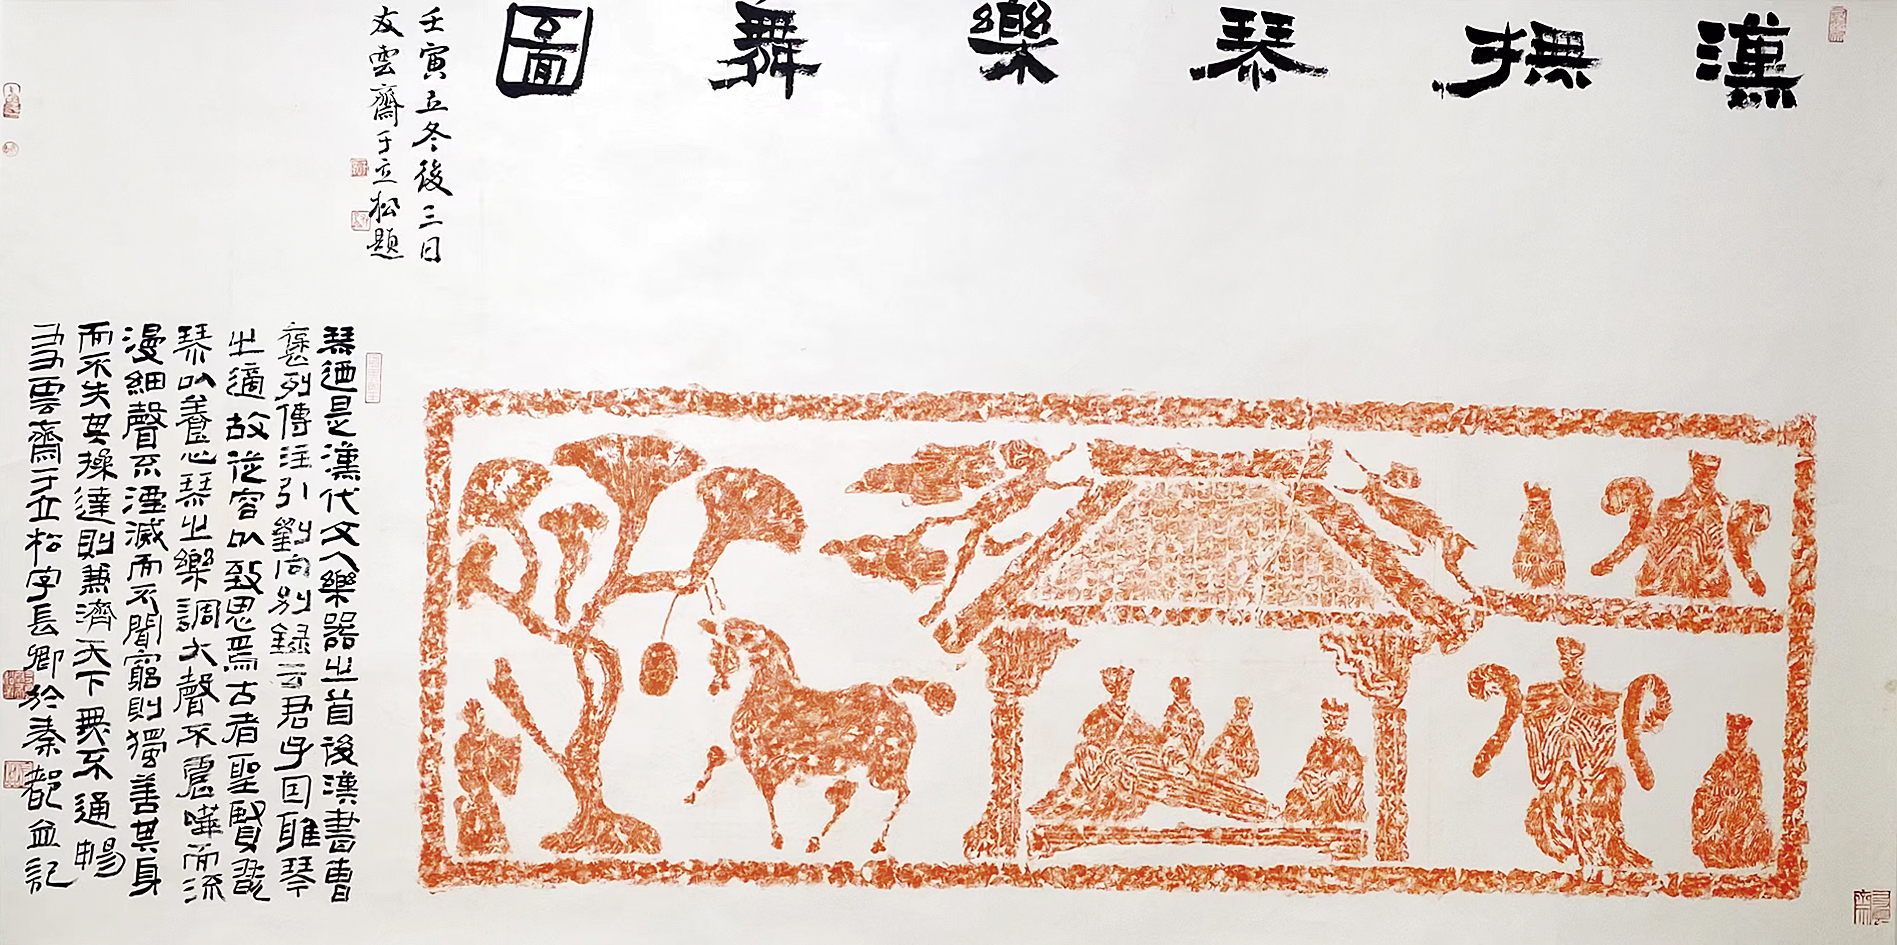 漢撫琴樂舞圖
壬寅立冬後三日
友雲齋于立松題
琴迺是漢代文人樂器之首後漢書曹
褒列傳注引劉向別錄云君子因雅琴
之適故從容以致思焉古者聖賢翫
琴以養心琴之樂調大聲不震嘩而流
漫細聲不湮滅而不聞窮則獨善其身
而不失其操達則兼濟天下無不通暢
友雲齋于立松字長卿於秦都並記